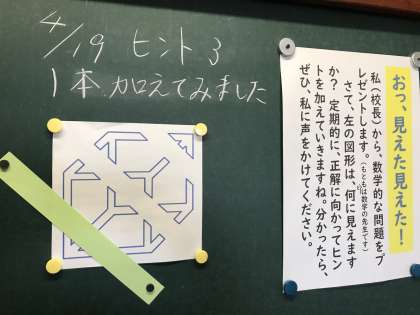 4/19 ヒント3
1本 加えてみました
おっ、見えた見えた!
私(校長)から、数学的な問題をプ
レゼントします。(もともは数学の先生です)
さて、左の図形は、何に見えます
か? 定期的に、正解に向かってヒン
トを加えていきますね。分かったら、
ぜひ、私に声をかけてください。